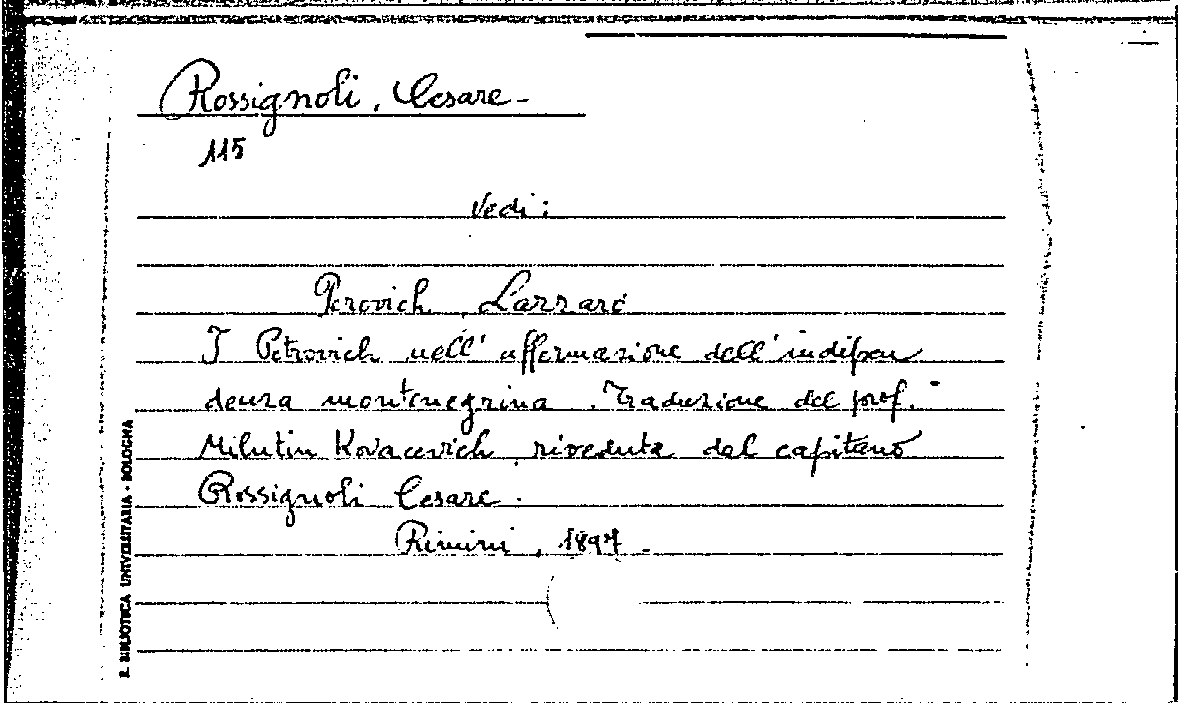 Rossignoli, Cesare -
115
Vedi:
Perovich, Lazzaro
I Petrovich nell'affermazione dell'indipen
denza montenegrina. Traduzione del prof.
Milutin Kovacevich, riveduta dal capitano
Rossignoli Cesare.
Rimini, 1897.
R. BIBLIOTECA UNIVERSITARIA - BOLOGNA